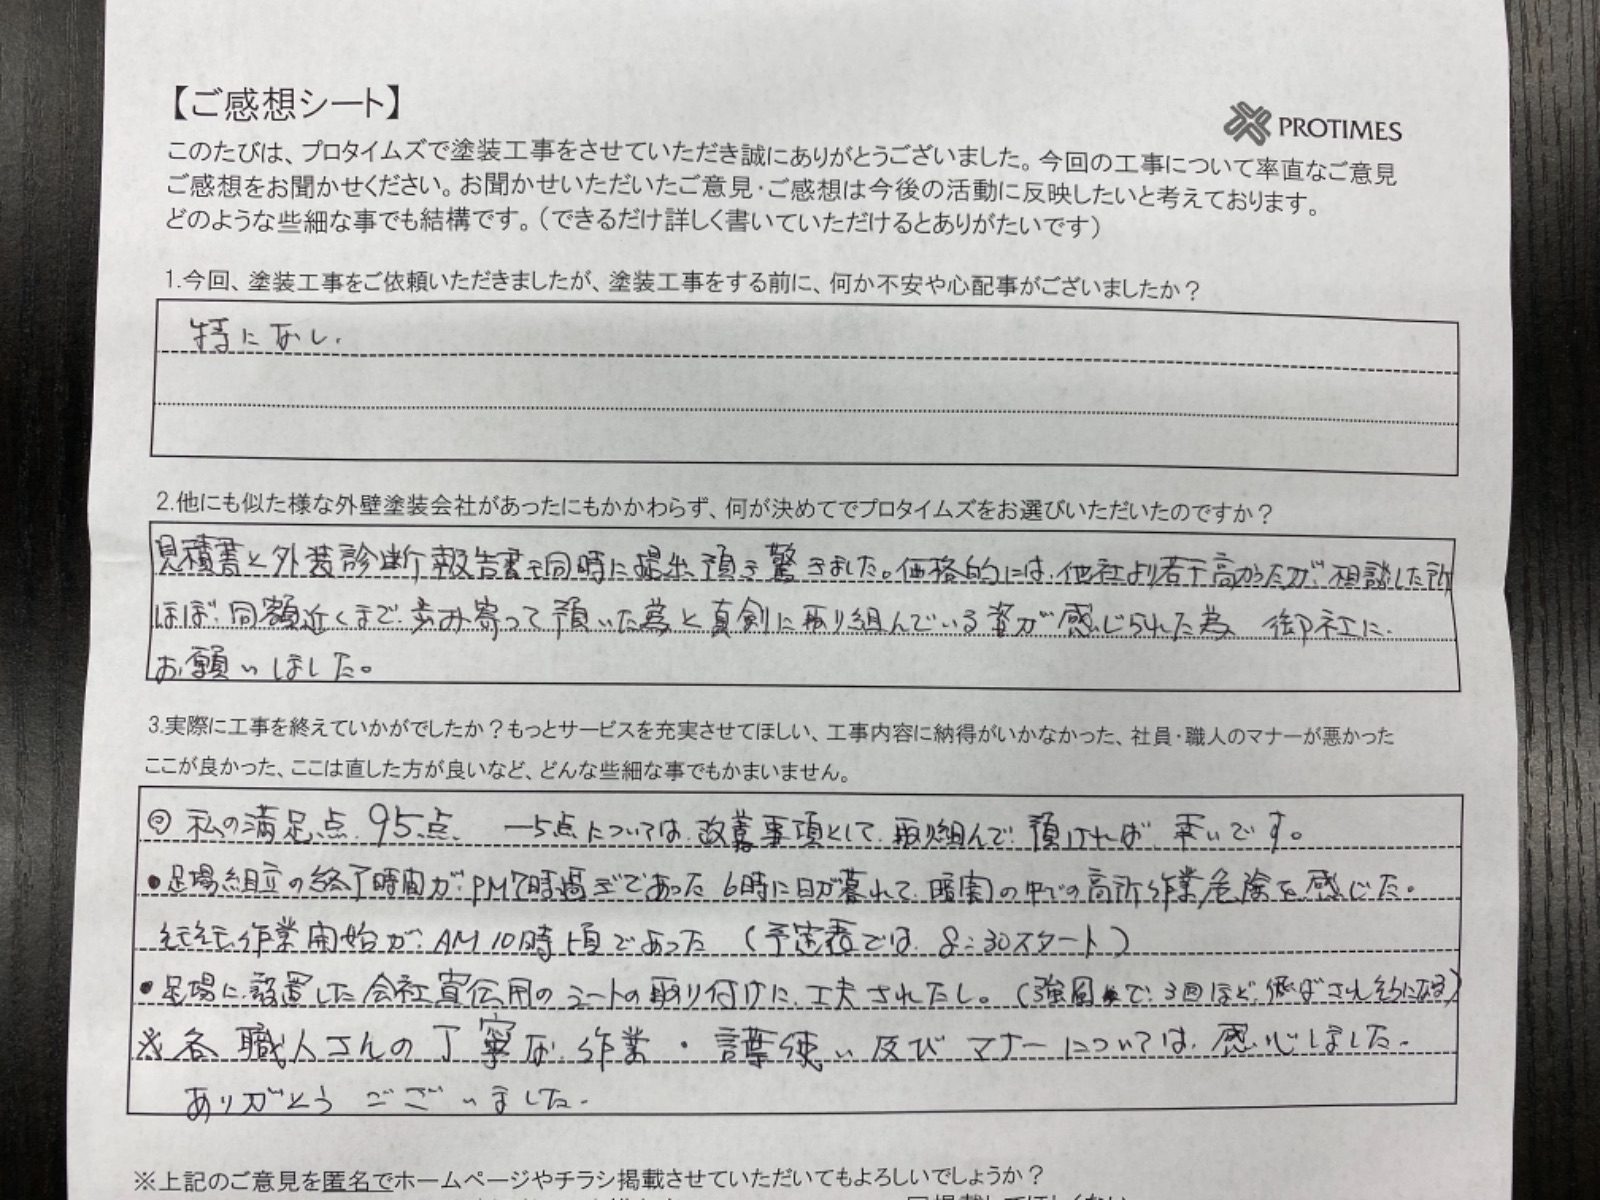 【ご感想シート】
PROTIMES
このたびは、プロタイムズで塗装工事をさせていただき誠にありがとうございました。今回の工事について率直なご意見
ご感想をお聞かせください。お聞かせいただいたご意見・ご感想は今後の活動に反映したいと考えております。
どのような些細な事でも結構です。(できるだけ詳しく書いていただけるとありがたいです)
1.今回、塗装工事をご依頼いただきましたが、塗装工事をする前に、何か不安や心配事がございましたか?
特になし.
2.他にも似た様な外壁塗装会社があったにもかかわらず、何が決めてでプロタイムズをお選びいただいたのですか?
見積書と外装診断報告書を同時に提出頂き驚きました。価格的には、他社より若干高かったが、相談した所
ほぼ、同額近くまで、歩み寄って頂いた為と真剣に取り組んでいる姿が感じられた為 御社に、
お願いしました。
3.実際に工事を終えていかがでしたか?もっとサービスを充実させてほしい、工事内容に納得がいかなかった、社員・職人のマナーが悪かった
ここが良かった、ここは直した方が良いなど、どんな些細な事でもかまいません。
◎ 私の満足点、95点、 -5点については、改善事項として、取り組んで、頂ければ、幸いです。
●足場組立の終了時間が、PM7時過ぎであった 6時に日が暮れて、暗闇の中での高所作業危険を感じた。
そもそも作業開始が、AM10時頃であった (予定表では、8:30スタート)
●足場に設置した会社宣伝用のシートの取り付けに、工夫されたし。(強風で、3回ほど、飛ばされそうになる)
※各職人さんの丁寧な作業・言葉使い及びマナーについては、感心しました。
ありがとうございました。
※上記のご意見を匿名でホームページやチラシ掲載させていただいてもよろしいでしょうか?